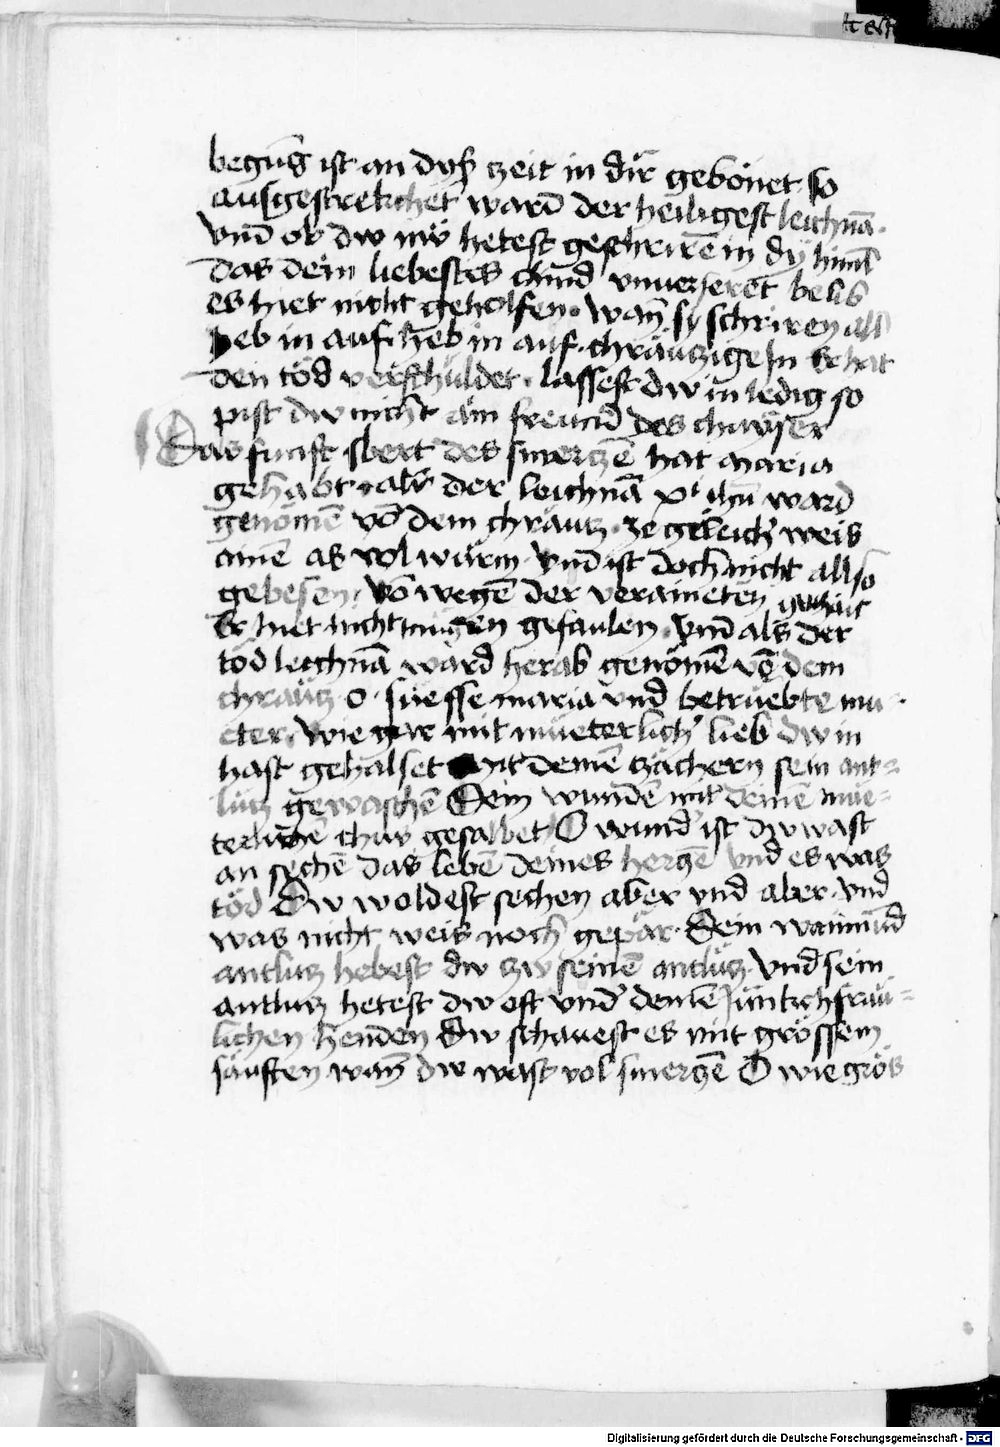 begūg ist an dyß zeit in dir gebönet so
ausgestrekchet ward der heiligest leichnā.
vnd ob dw nw hetest geschrirē in dy himl
das dein liebestes chind vnuerseret belib
es hiet nicht geholfen. wan sy schriren all
heb in auf. heb in auf. chräwczige In Er hat
den töd verschuldet. lassest dw in ledig so
pist dw nicht ain freund des chayser
Das funft sbert des smerczē hat maria
gehabt. als der leichnā xi ihū ward
genömē vō dem chräucz. ze geleicher weis
ainē as vol würm. vnd ist doch nicht allso
gebesen. vō wegē der veraineten gothait
Er hiet nicht mügen gefaulen. vnd als der
töd leichnā ward herab genömē vō dem
chräucz. o. suesse maria vnd betruebte mu
eter. wie gar mit mueterlicher lieb dw in
hast gehalset mit deinē zächern sein ant=
lucz gewaschē Sein wundē mit deinē mue=
terlichē chus gesalbet O wund' ist dw wast
an sechē das lebē deines herczē vnd es was
töd Dw woldest sechen aber vnd aber. vnd
was nicht weis noch gepär. Dein wainund
antlucz hebest dw zw seinē antlücz. Vnd sein
antlucz hetest dw oft vnd' deinē Junkchfräu=
lichen henden Dw schauest es mit grössem
säuften wan dw wast vol smerczē O wie grös
Digitalisierung gefördert durch die Deutsche Forschungsgemeinschaft - DFG